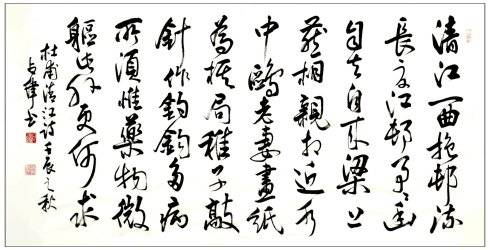 清江一曲抱邨流
長夏江邨事事幽
自去自來梁上
燕相親相近水
中鷗老妻畫紙
為棋局稚子敲
針作釣鉤多病
所須惟藥物微
軀此外更何求
杜甫清江詩壬辰之秋
書